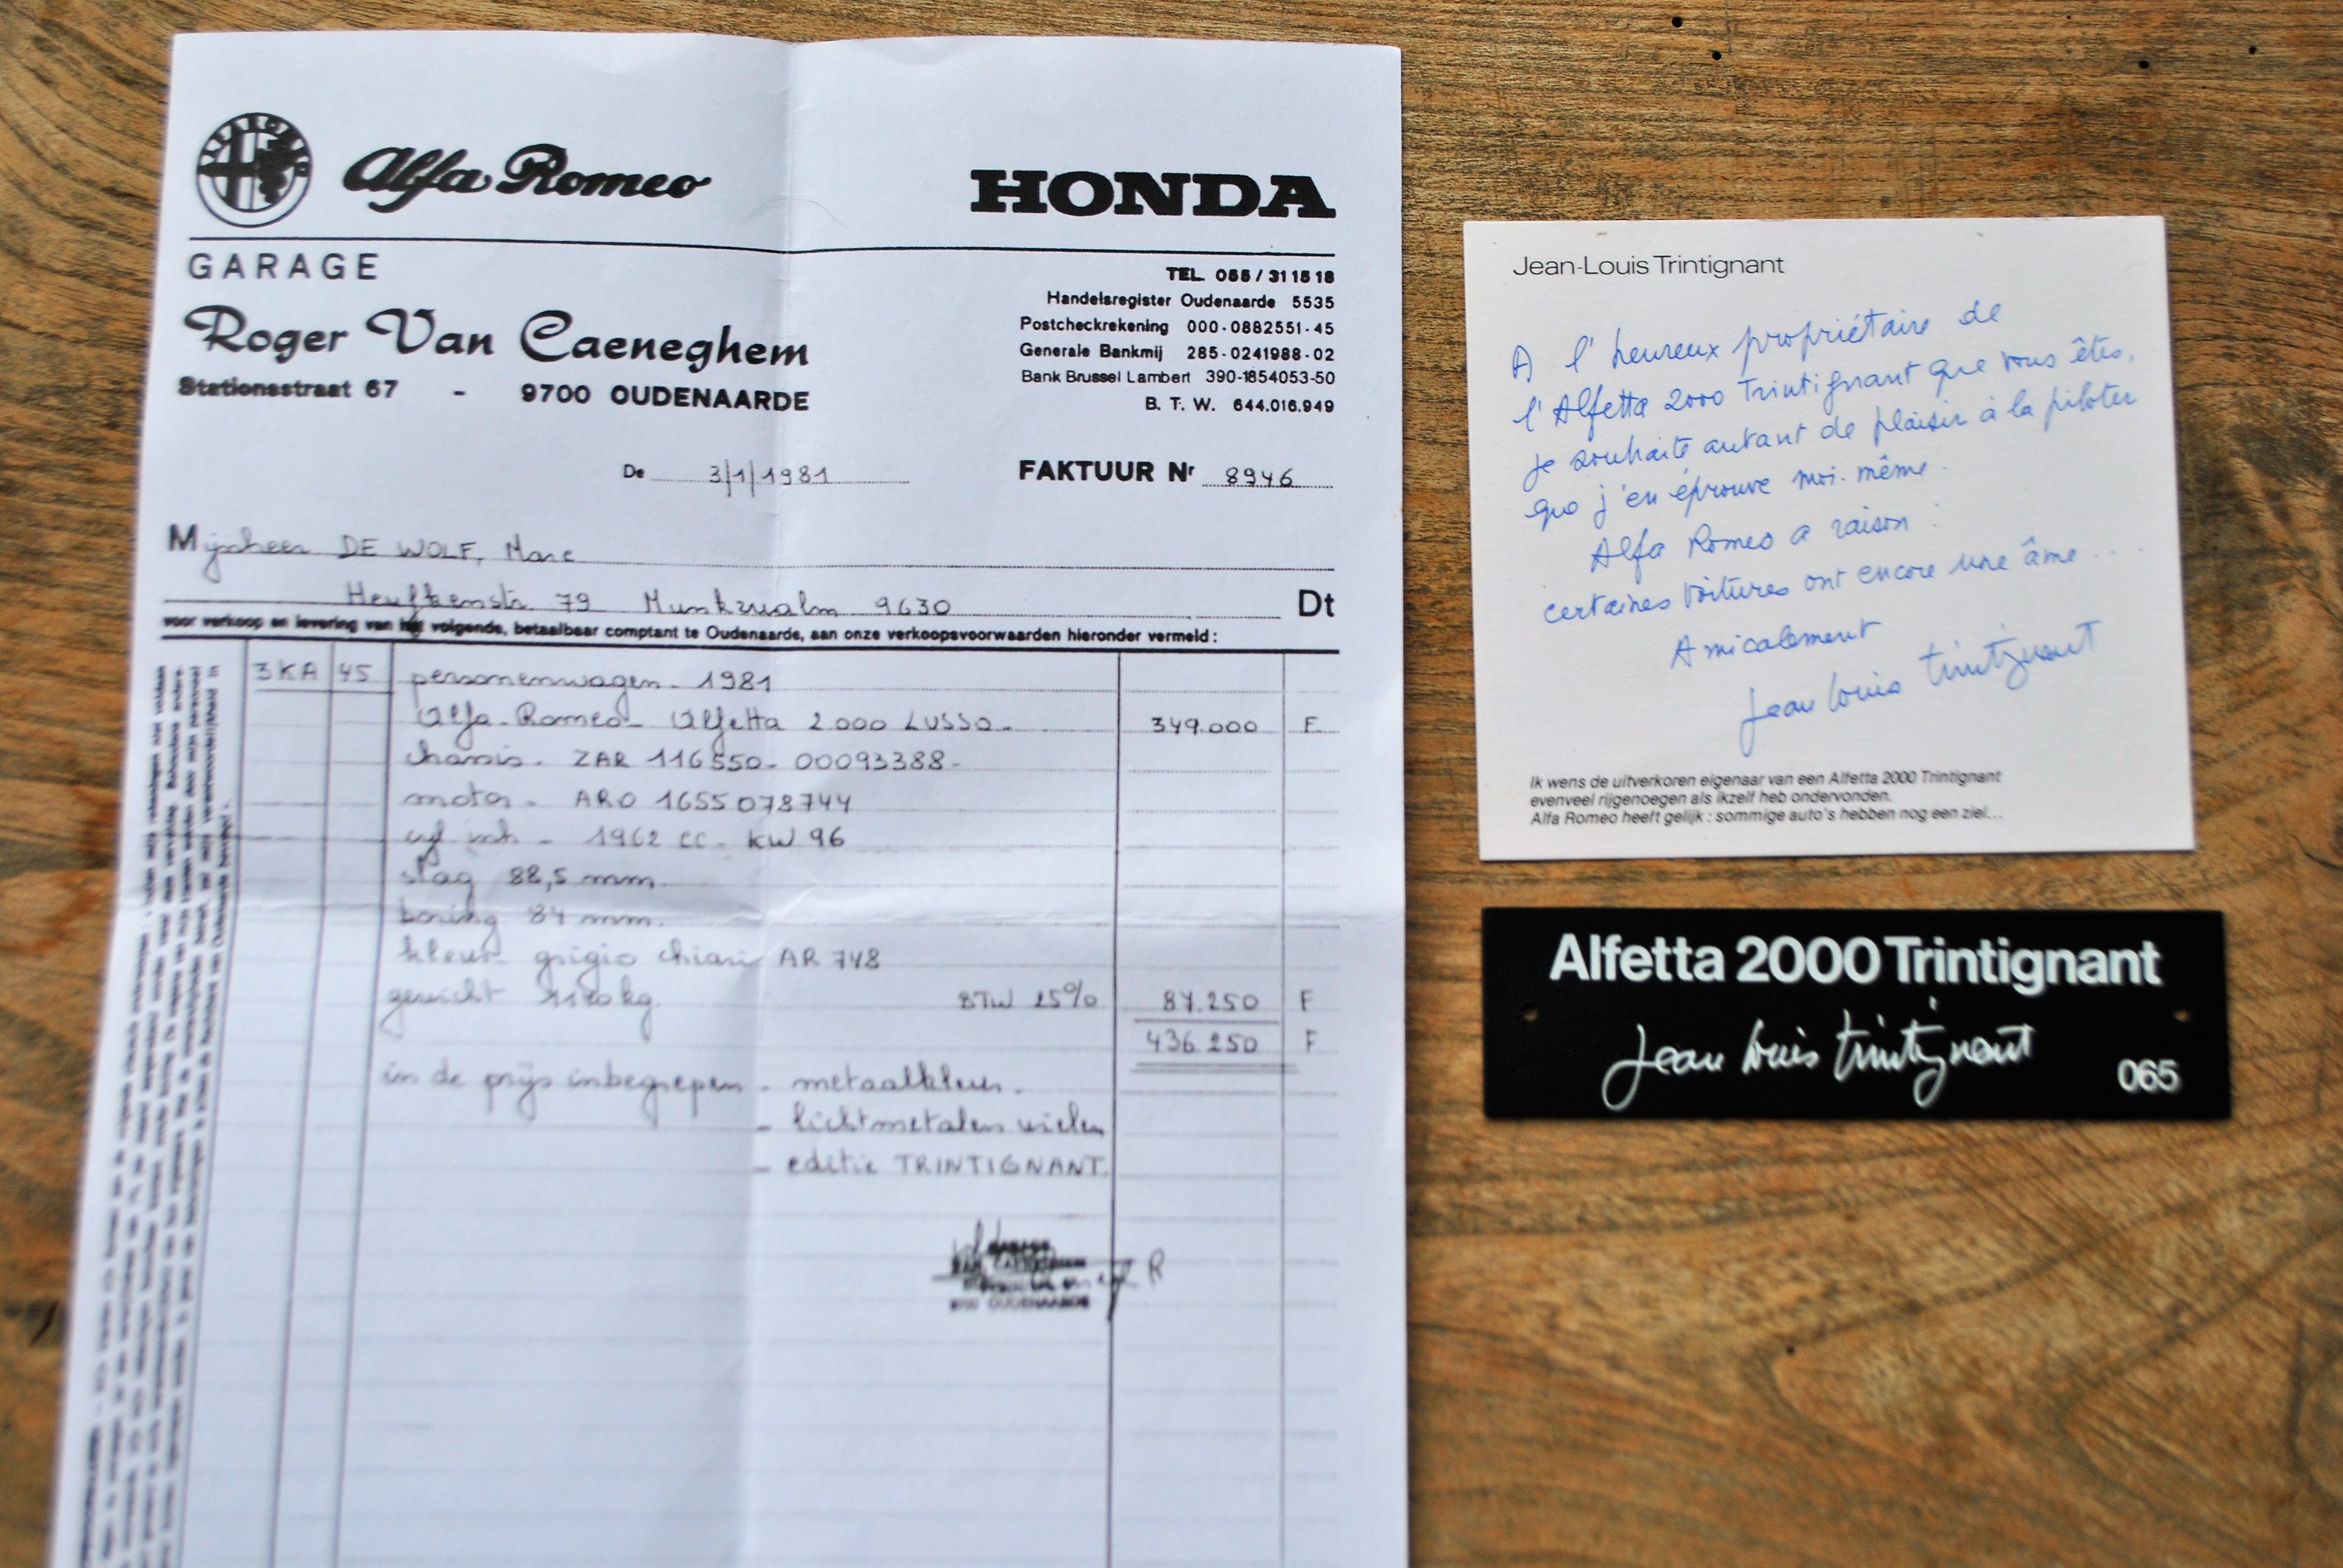 Alfa Romeo
HONDA
GARAGE
Roger Van Caeneghem
Stationsstraat 67 - 9700 OUDENAARDE
TEL. 055/311518
Handelsregister Oudenaarde 5535
Postcheckrekening 000-0882551-45
Generale Bankmij 285-0241988-02
Bank Brussel Lambert 390-1854053-50
B. T. W. 644.016.949
De 3/1/1981
FAKTUUR Nr 8946
Mijnheer DE WOLF, Marc
79 Munkzwalm 9630 Dt
voor verkoop en levering van het volgende, betaalbaar comptant te Oudenaarde, aan onze verkoopsvoorwaarden hieronder vermeld :
3KA 45 personenwagen - 1981
Alfa-Romeo - Alfetta 2000 LUSSO - 349.000 F
chassis - ZAR 116550 - 00093388 -
motor - ARO 1655 078744
cyl inh - 1962 cc - KW 96
slag 88,5 mm.
boring 84 mm.
kleur grigio chiari AR 748
gewicht kg. BTW 25% 87.250 F
436.250 F
in de prijs inbegrepen - metaalkleur.
- lichtmetalen wielen
- editie TRINTIGNANT.
OUDENAARDE
Jean-Louis Trintignant
A l'heureux propriétaire de
l'Alfetta 2000 Trintignant que vous êtes,
je souhaite autant de plaisir à la piloter
que j'en éprouve moi-même.
Alfa Romeo a raison :
certaines voitures ont encore une âme...
Amicalement
Jean Louis Trintignant
Ik wens de uitverkoren eigenaar van een Alfetta 2000 Trintignant
evenveel rijgenoegen als ikzelf heb ondervonden.
Alfa Romeo heeft gelijk : sommige auto's hebben nog een ziel...
Alfetta 2000 Trintignant
Jean Louis Trintignant
065